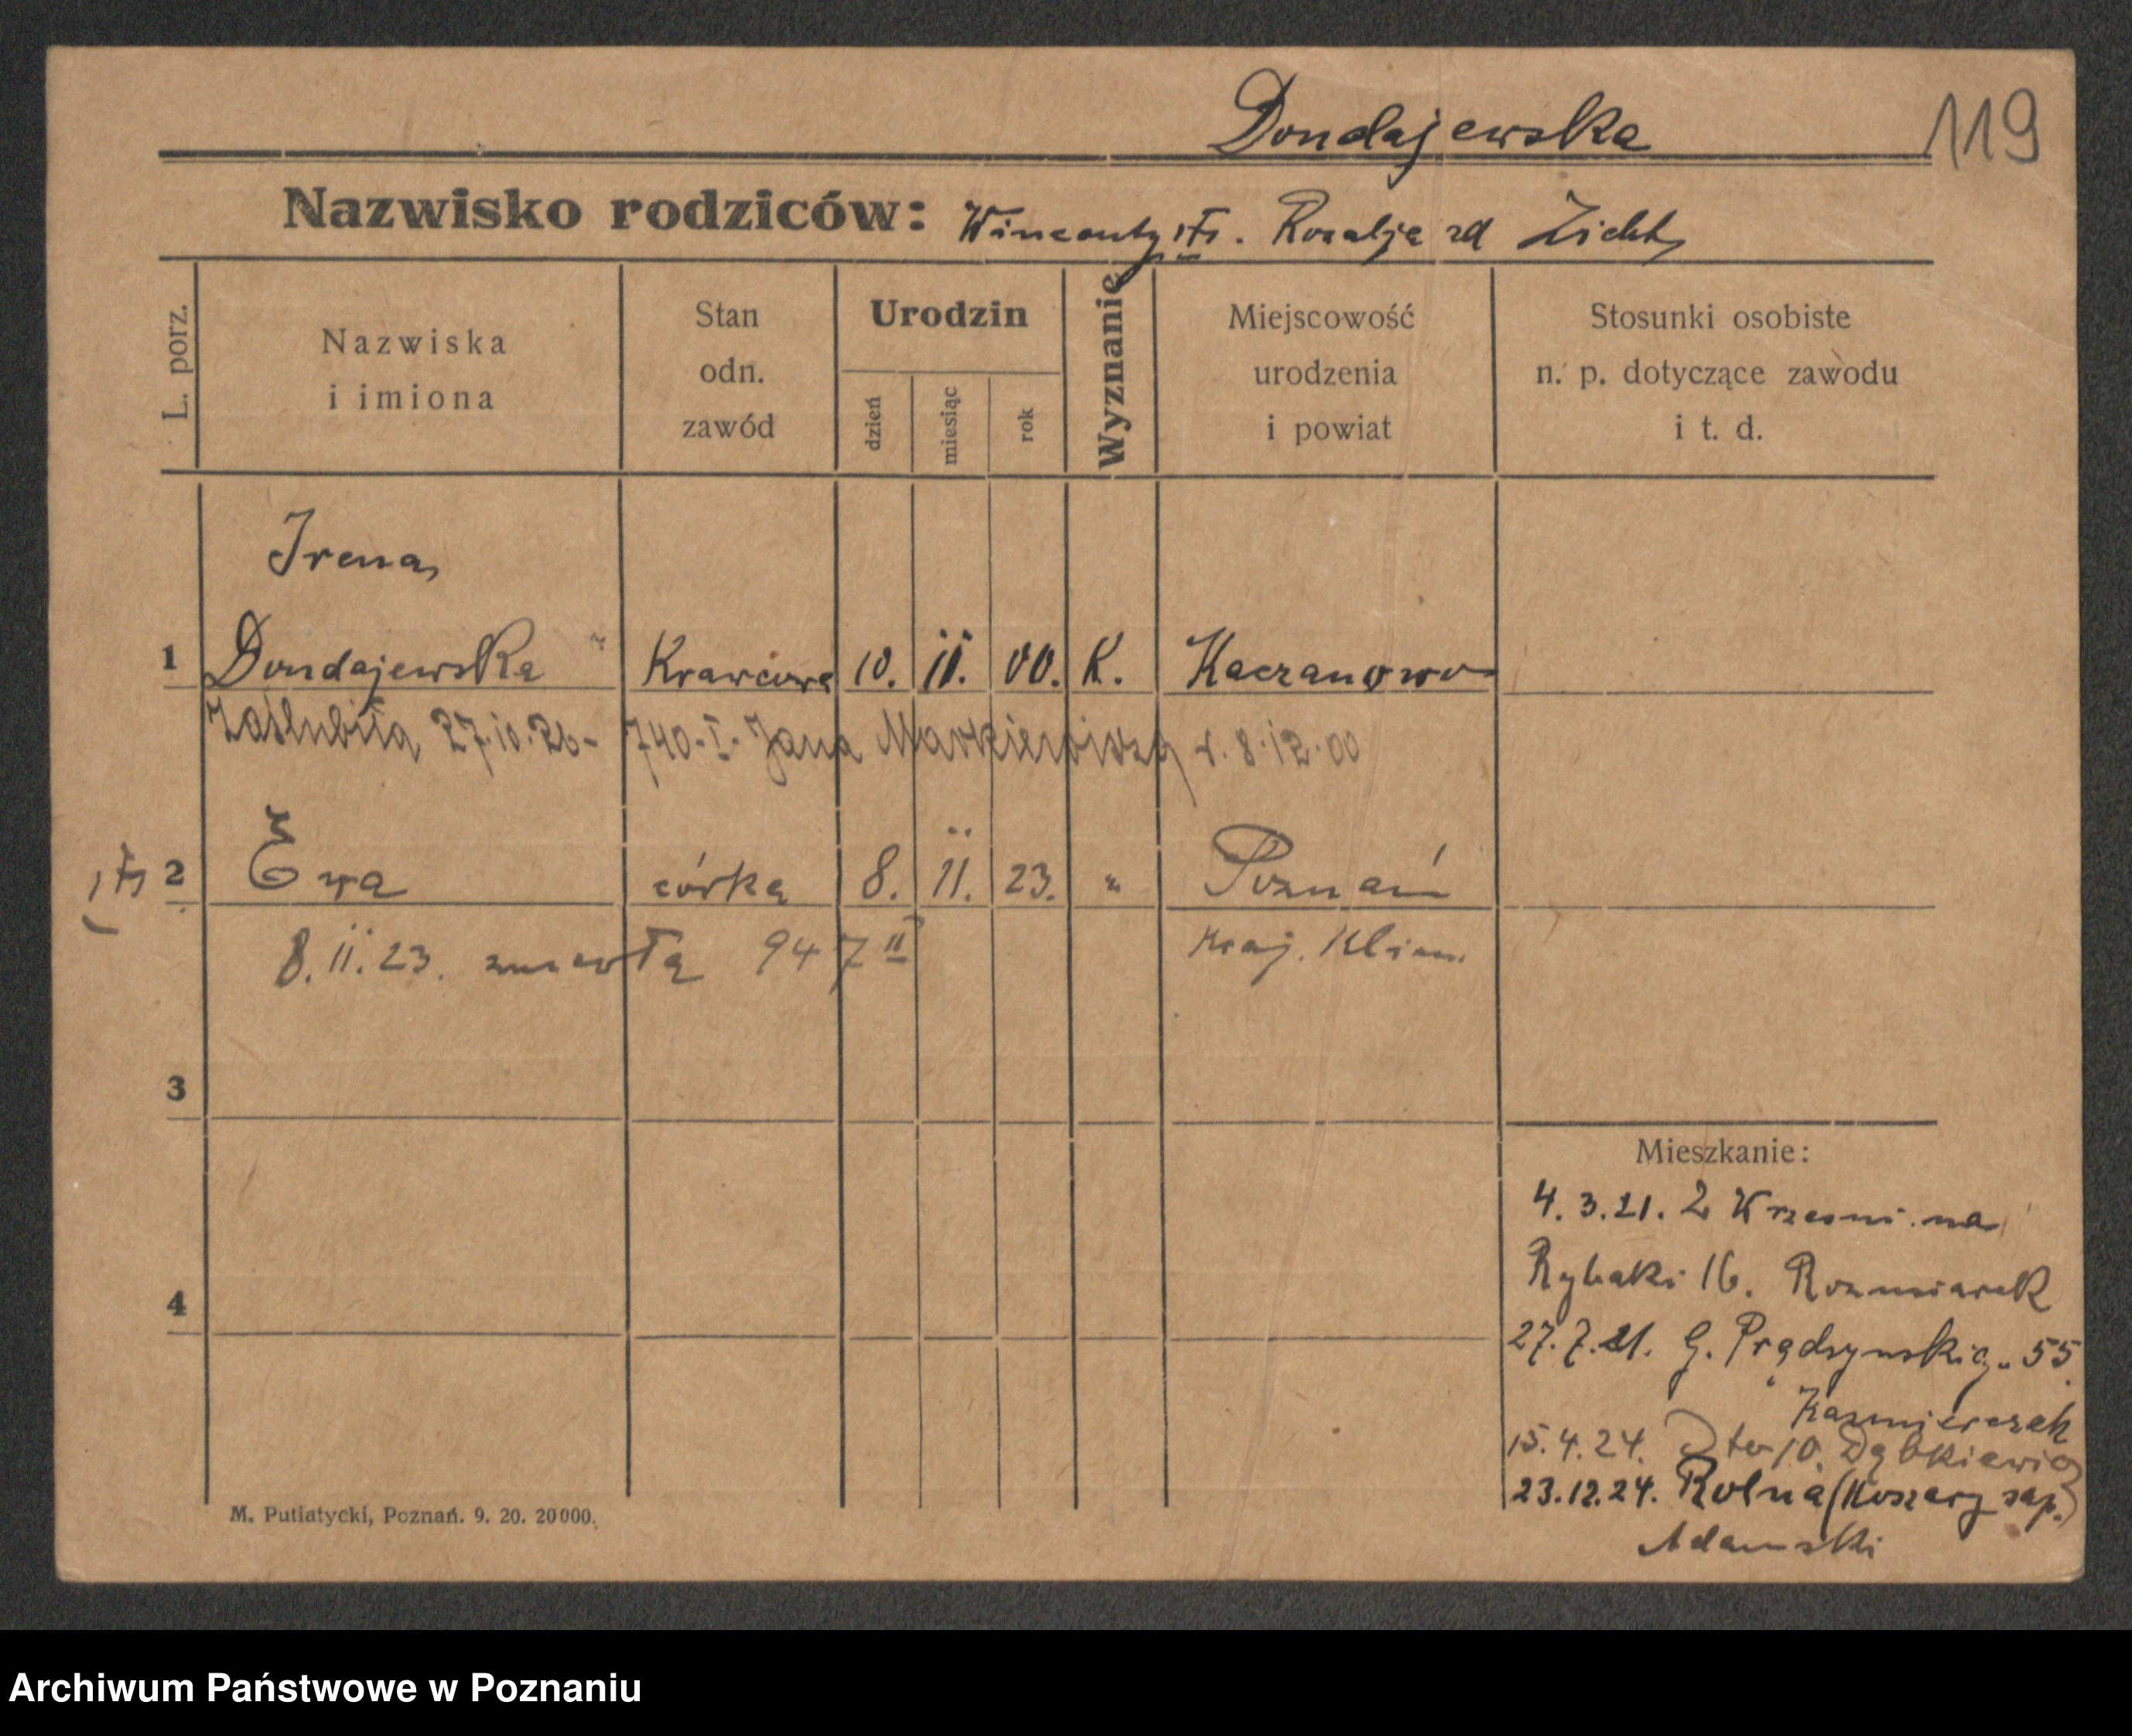 Dondajewska
119
Nazwisko rodziców: Wincenty Rozalja zd Zicht
L. porz.
Nazwiska
i imiona
Stan
odn.
zawód
Urodzin
dzień
miesiąc
rok
Wyznanie
Miejscowość
urodzenia
i powiat
Stosunki osobiste
n. p. dotyczące zawodu
i t. d.
Irena
1 Dondajewska Krawcowa 10. 11. 00. K. Kaczanowo
Zaślubiła 27.10.26- 740-I- Jana Markiewicza r. 8.12.00
2 Ewa córka 8. 11. 23. " Poznań
8. 11. 23. zmarła 947 II Kraj. Klin.
3
4
Mieszkanie:
4. 3. 21. z Wrześni na
Rybaki 16. Rozmiarek
27. 7. 21. G. Prądzyńskieg. 55
Kazmierczak
15. 4. 24. 10.
23. 12. 24. Rolna (Koszary sap.)
Adamski
M. Putiatycki, Poznań. 9. 20. 20000.
Archiwum Państwowe w Poznaniu